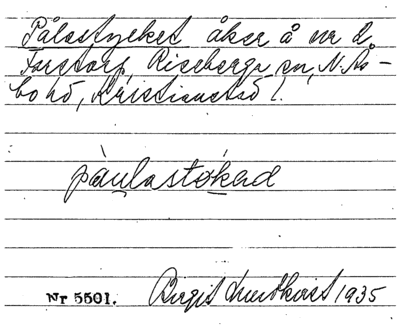 Pålastycket åker å nr 2,
Färstorp, Riseberga sn, N. Ås-
bo hd, Kristianstad l.
pàulastøkəd
Nr 5501. Birgit Lundkvist 1935